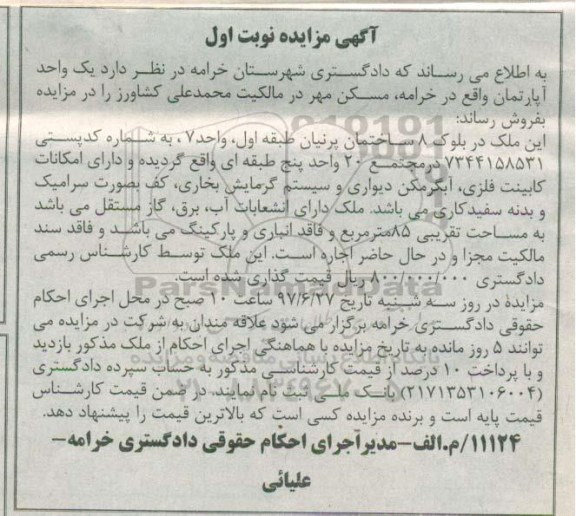 آگهی مزایده نوبت اول
به اطلاع می رساند که دادگستری شهرستان خرامه در نظر دارد یک واحد
آپارتمان واقع در خرامه، مسکن مهر در مالکیت محمدعلی کشاورز را در مزایده
بفروش رساند:
این ملک در بلوک ۸ ساختمان پرنیان طبقه اول، واحد۷ ، به شماره کدپستی
۷۳۴۴۱۵۸۵۳۱ درمجتمع ۲۰ واحد پنج طبقه ای واقع گردیده و دارای امکانات
کابینت فلزی، آبگرمکن دیواری و سیستم گرمایش بخاری، کف بصورت سرامیک
و بدنه سفیدکاری می باشد. ملک دارای انشعابات آب، برق، گاز مستقل می باشد
به مساحت تقریبی ۸۵مترمربع و فاقد انباری و پارکینگ می باشد و فاقد سند
مالکیت مجزا و در حال حاضر اجاره است. این ملک توسط کارشناس رسمی
دادگستری ۸۰۰/۰۰۰/۰۰۰ ریال قیمت گذاری شده است.
مزایده در روز سه شنبه تاریخ ۹۷/۶/۲۷ ساعت ۱۰ صبح در محل اجرای احکام
حقوقی دادگستری خرامه برگزار می شود علاقه مندان به شرکت در مزایده می
توانند ۵ روز مانده به تاریخ مزایده با هماهنگی اجرای احکام از ملک مذکور بازدید
و با پرداخت ۱۰ درصد از قیمت کارشناسی مذکور به حساب سپرده دادگستری
(۲۱۷۱۳۵۳۱۰۶۰۰۴) بانک ملی ثبت نام نمایند. در ضمن قیمت کارشناس
قیمت پایه است و برنده مزایده کسی است که بالاترین قیمت را پیشنهاد دهد.
۱۱۱۲۴/م.الف-مدیراجرای احکام حقوقی دادگستری خرامه-
علیائی
ParsNamadData